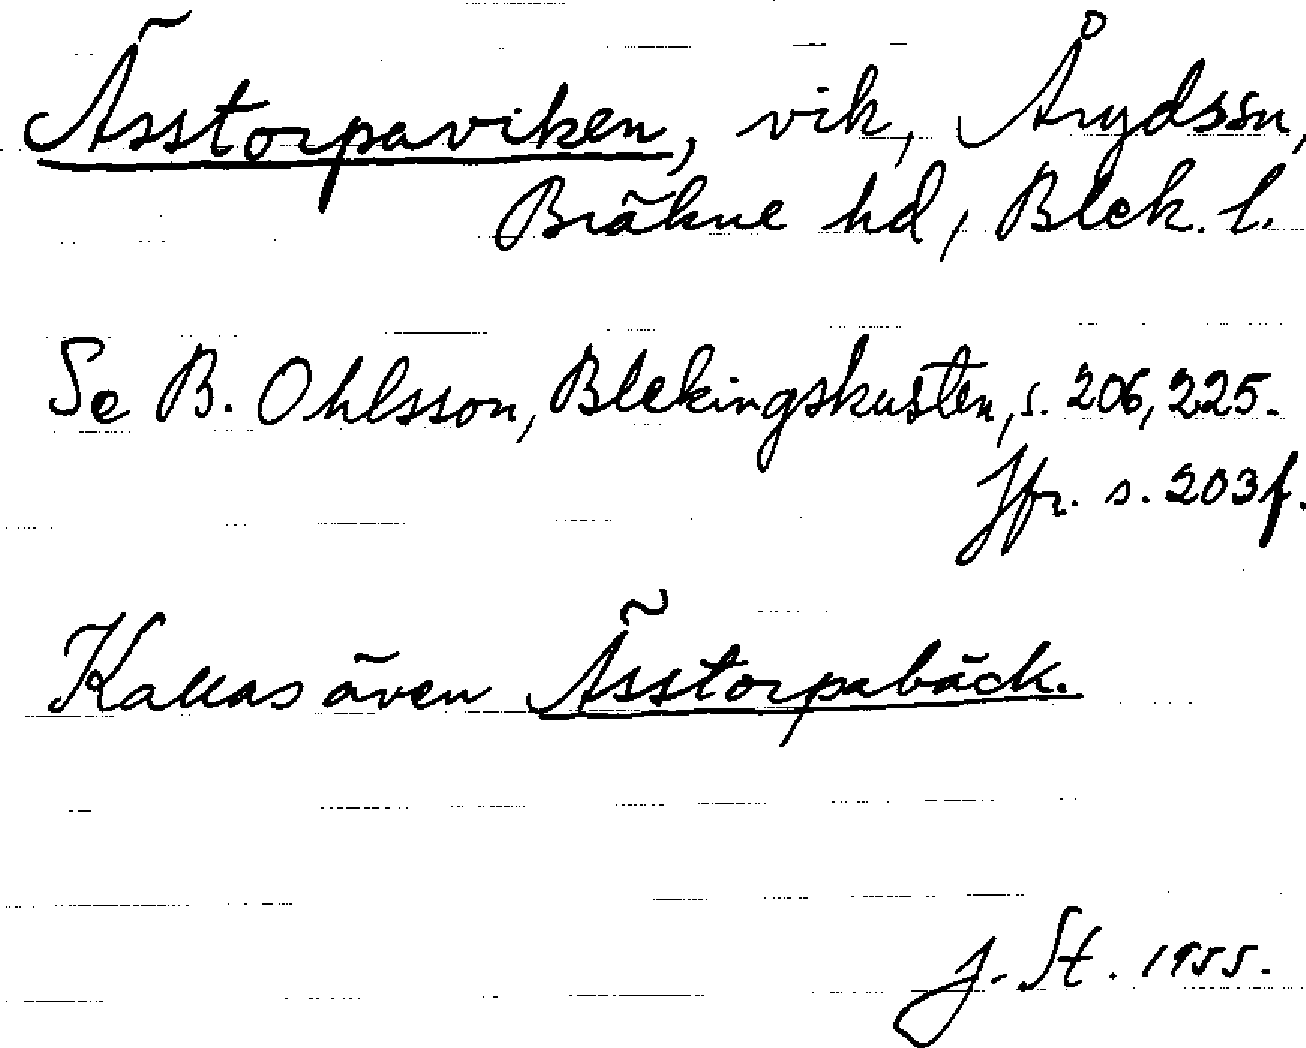 Ässtorpaviken, vik, Årydssn,
Bräkne hd, Blek. l.
Se B. Ohlsson, Blekingskusten, s. 206, 225.
Jfr. s. 203f.
Kallas även Ässtorpabäck.
J. St. 1955.